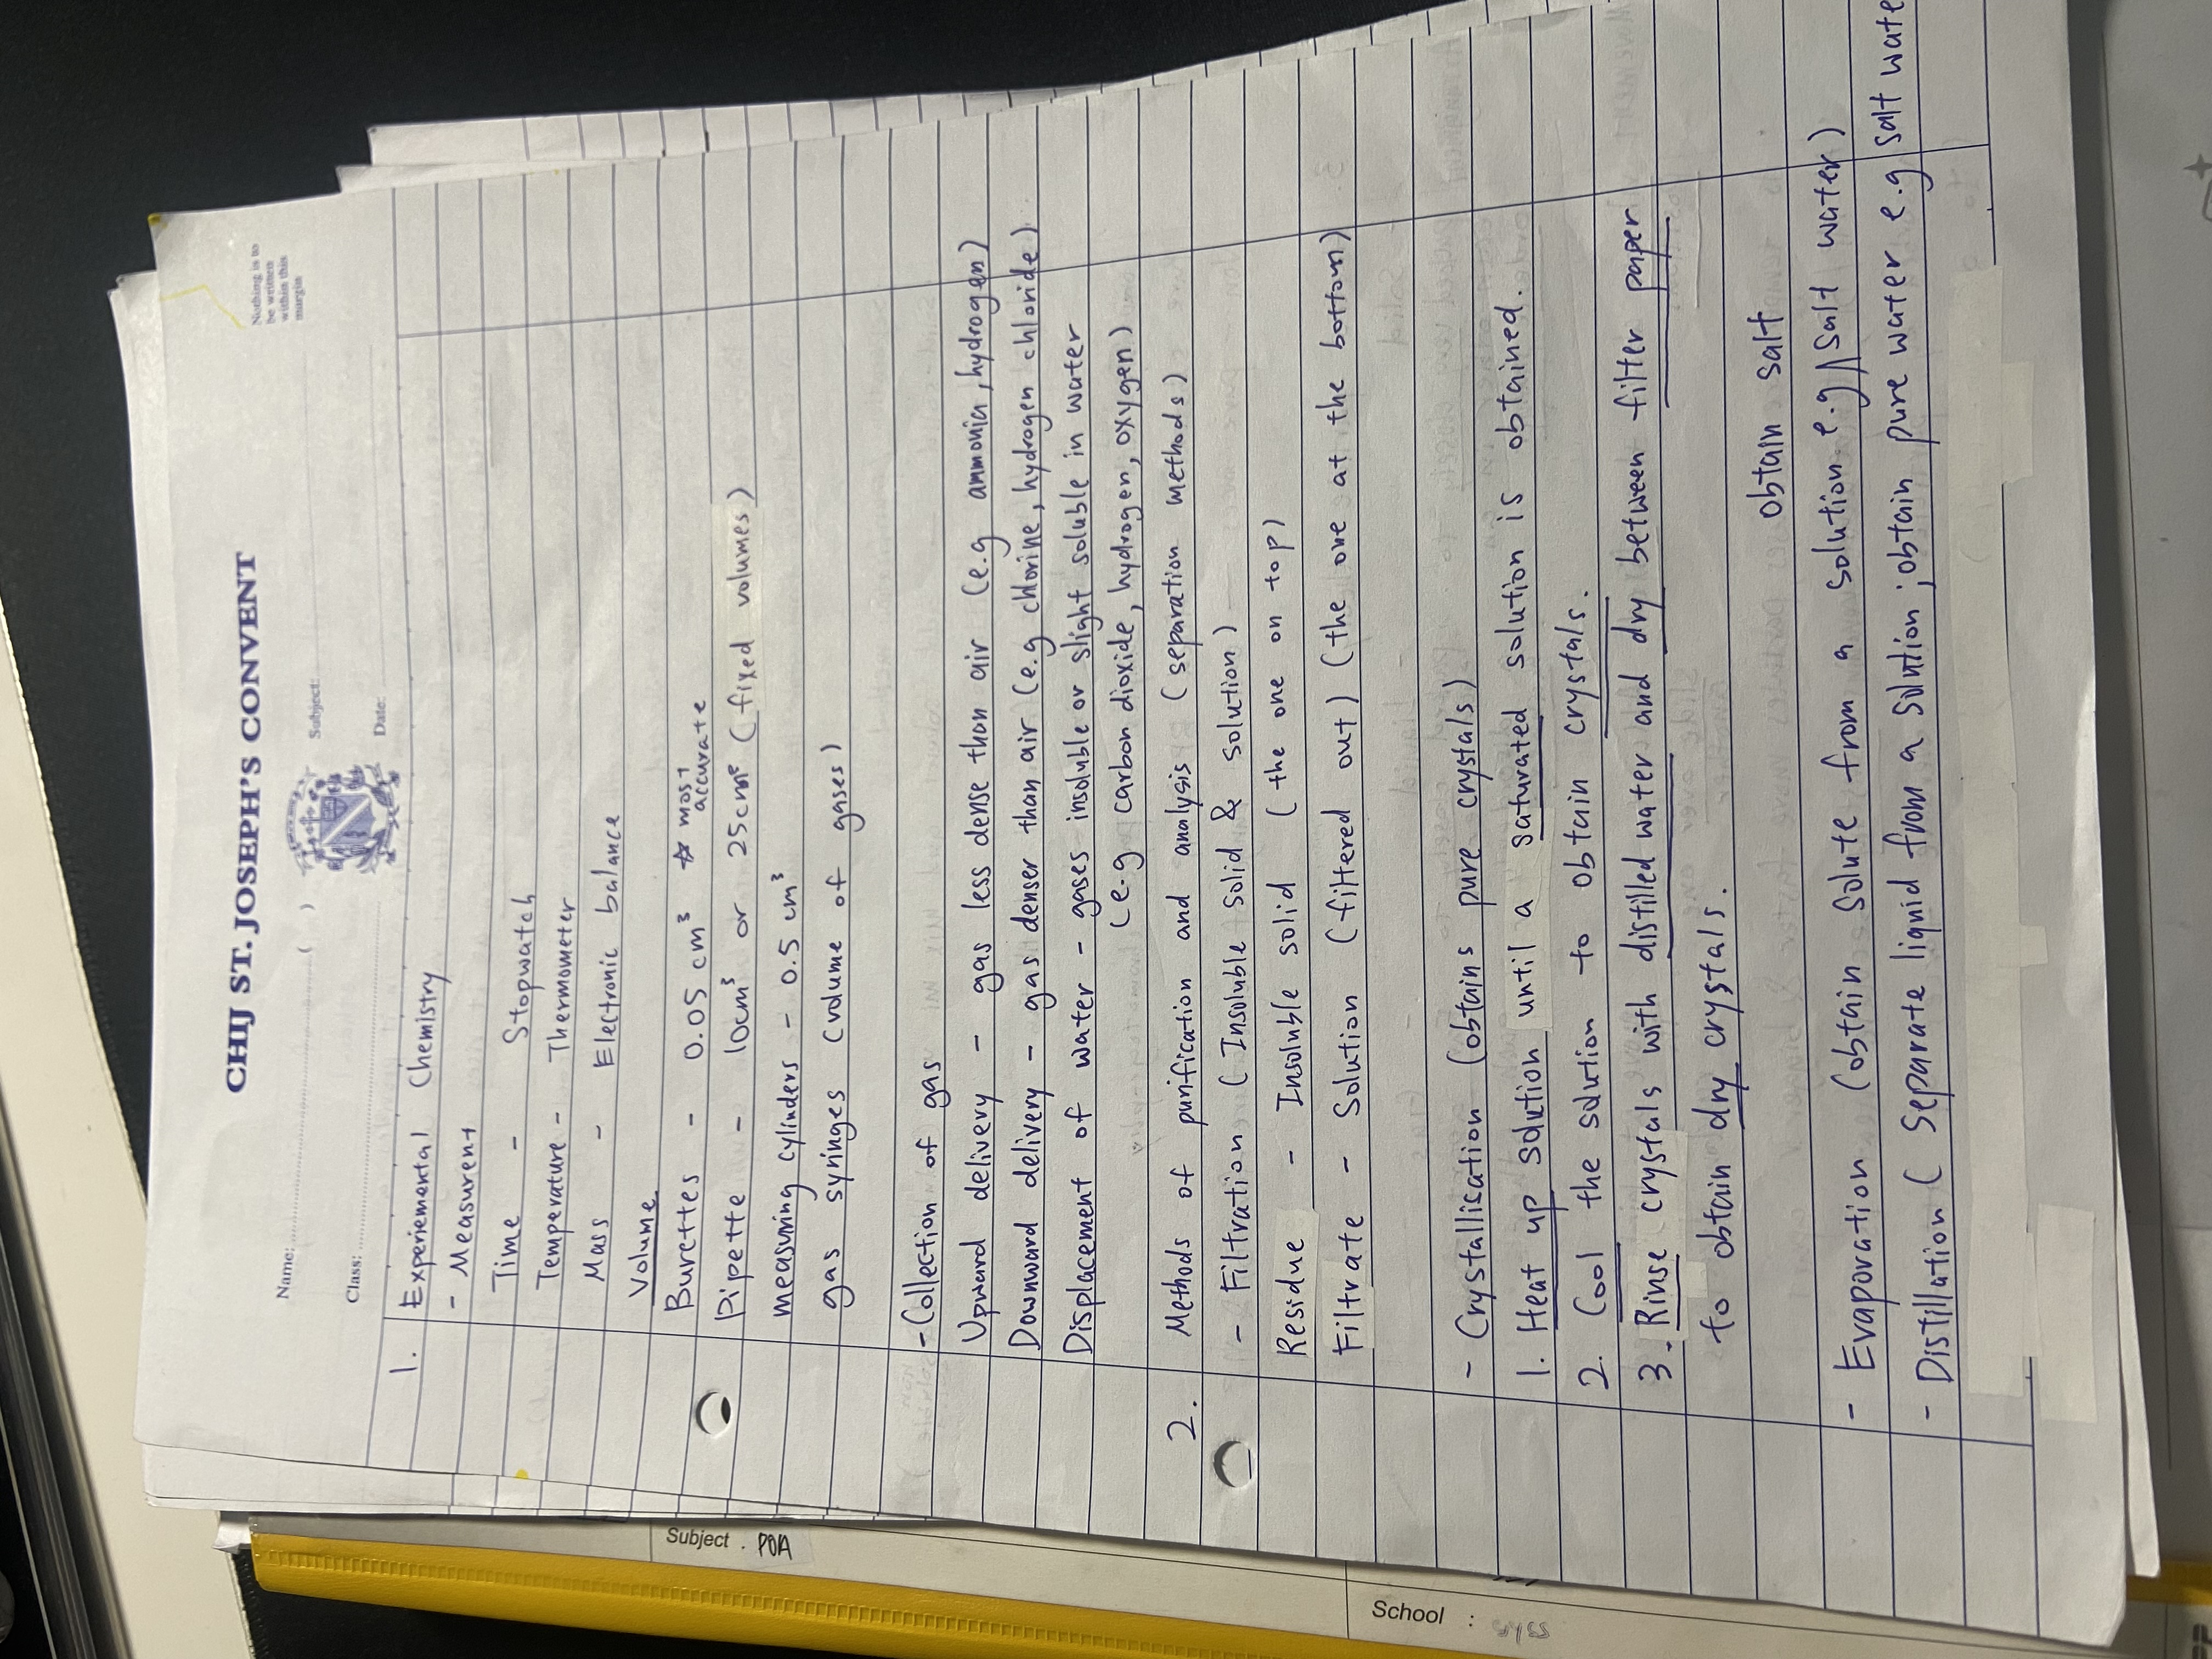 CHIJ ST. JOSEPH'S CONVENT
Nothing is to
be written
within this
margin
Name: ( )
Subject:
Class:
Date:
1. Experiemental Chemistry
- Measurent
Time - Stopwatch
Temperature - Thermometer
Mass - Electronic balance
Volume
Burettes - 0.05 cm³ ☆ most
accurate
Pipette - 10cm³ or 25cm³ (fixed volumes)
measuring cylinders - 0.5 cm³
gas syringes (volume of gases)
- Collection of gas
Upward delivery - gas less dense than air (e.g ammonia, hydrogen)
Downward delivery - gas denser than air (e.g chlorine, hydrogen chloride)
Displacement of water - gases insoluble or slight soluble in water
(e.g carbon dioxide, hydrogen, oxygen)
2. Methods of purification and analysis (separation methods)
- Filtration (Insoluble solid & solution)
Residue - Insoluble solid (the one on top)
Filtrate - Solution (filtered out) (the one at the bottom)
- Crystallisation (obtains pure crystals)
1. Heat up solution until a saturated solution is obtained.
2. Cool the solution to obtain crystals.
3. Rinse crystals with distilled water and dry between filter paper
to obtain dry crystals.
obtain salt
- Evaporation (obtain solute from a solution e.g salt water)
- Distillation (Separate liquid from a solution; obtain pure water e.g salt wate
Subject : POA
School :